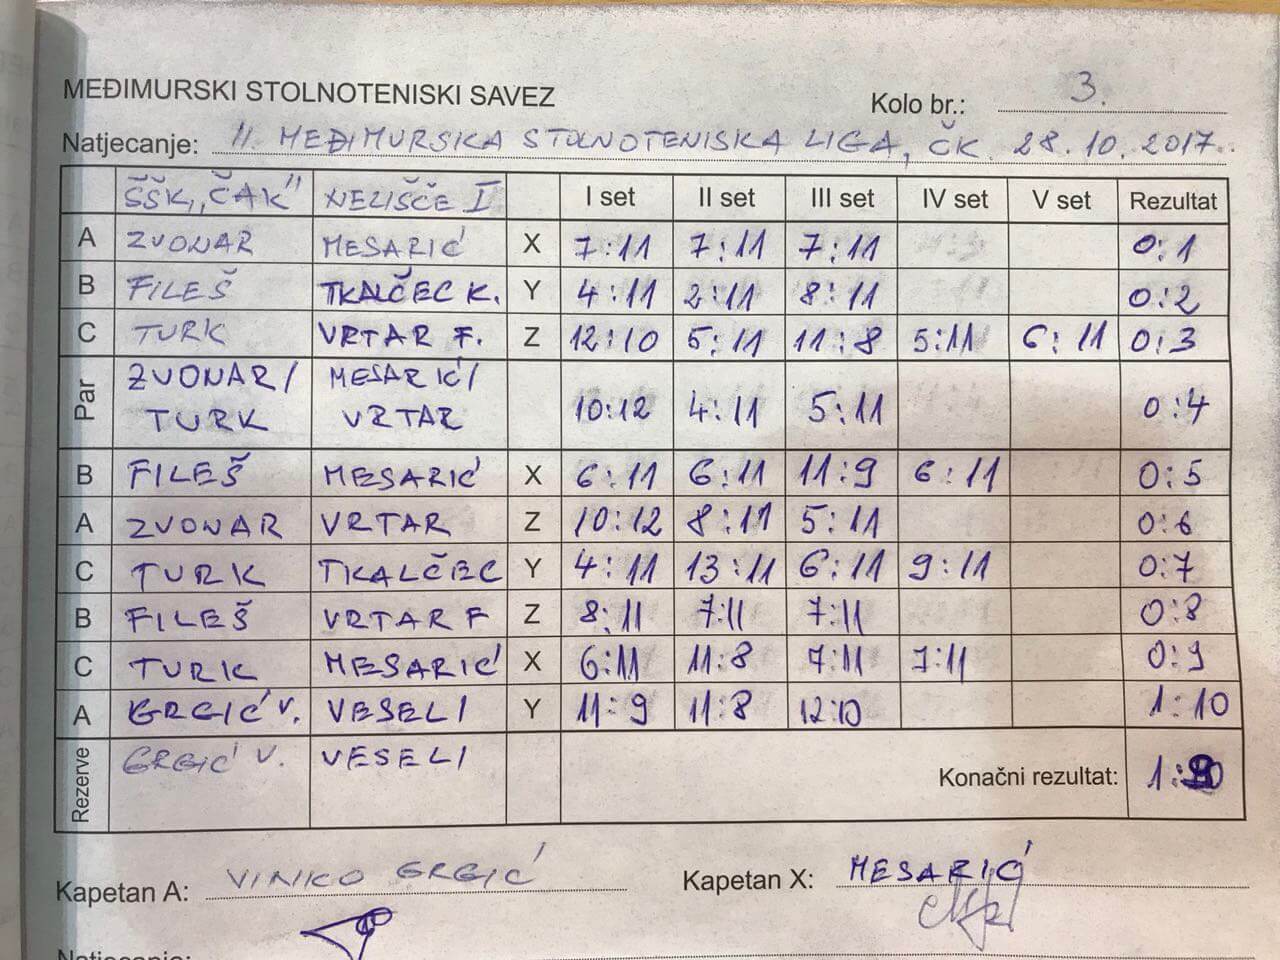 MEĐIMURSKI STOLNOTENISKI SAVEZ
Kolo br.: 3.
Natjecanje: II. MEĐIMURSKA STOLNOTENISKA LIGA, ČK. 28.10.2017.
ŠŠK „ČAK" NELIŠČE I I set II set III set IV set V set Rezultat
A ZVONAR MESARIĆ X 7:11 7:11 7:11 0:1
B FILEŠ TKALČEC K. Y 4:11 2:11 8:11 0:2
C TURK VRTAR F. Z 12:10 5:11 11:8 5:11 6:11 0:3
Par ZVONAR/ MESARIĆ/
TURK VRTAR 10:12 4:11 5:11 0:4
B FILEŠ MESARIĆ X 6:11 6:11 11:9 6:11 0:5
A ZVONAR VRTAR Z 10:12 8:11 5:11 0:6
C TURK TKALČEC Y 4:11 13:11 6:11 9:11 0:7
B FILEŠ VRTAR F Z 8:11 7:11 7:11 0:8
C TURK MESARIĆ X 6:11 11:8 7:11 7:11 0:9
A GRGIĆ V. VESELI Y 11:9 11:8 12:10 1:10
Rezerve GRGIĆ V. VESELI
Konačni rezultat:
Kapetan A: VINKO GRGIĆ Kapetan X: MESARIĆ
Natjecanje: